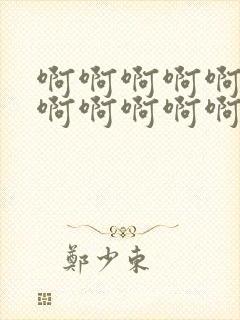 啊啊啊啊啊
啊啊啊啊啊
鄭少東